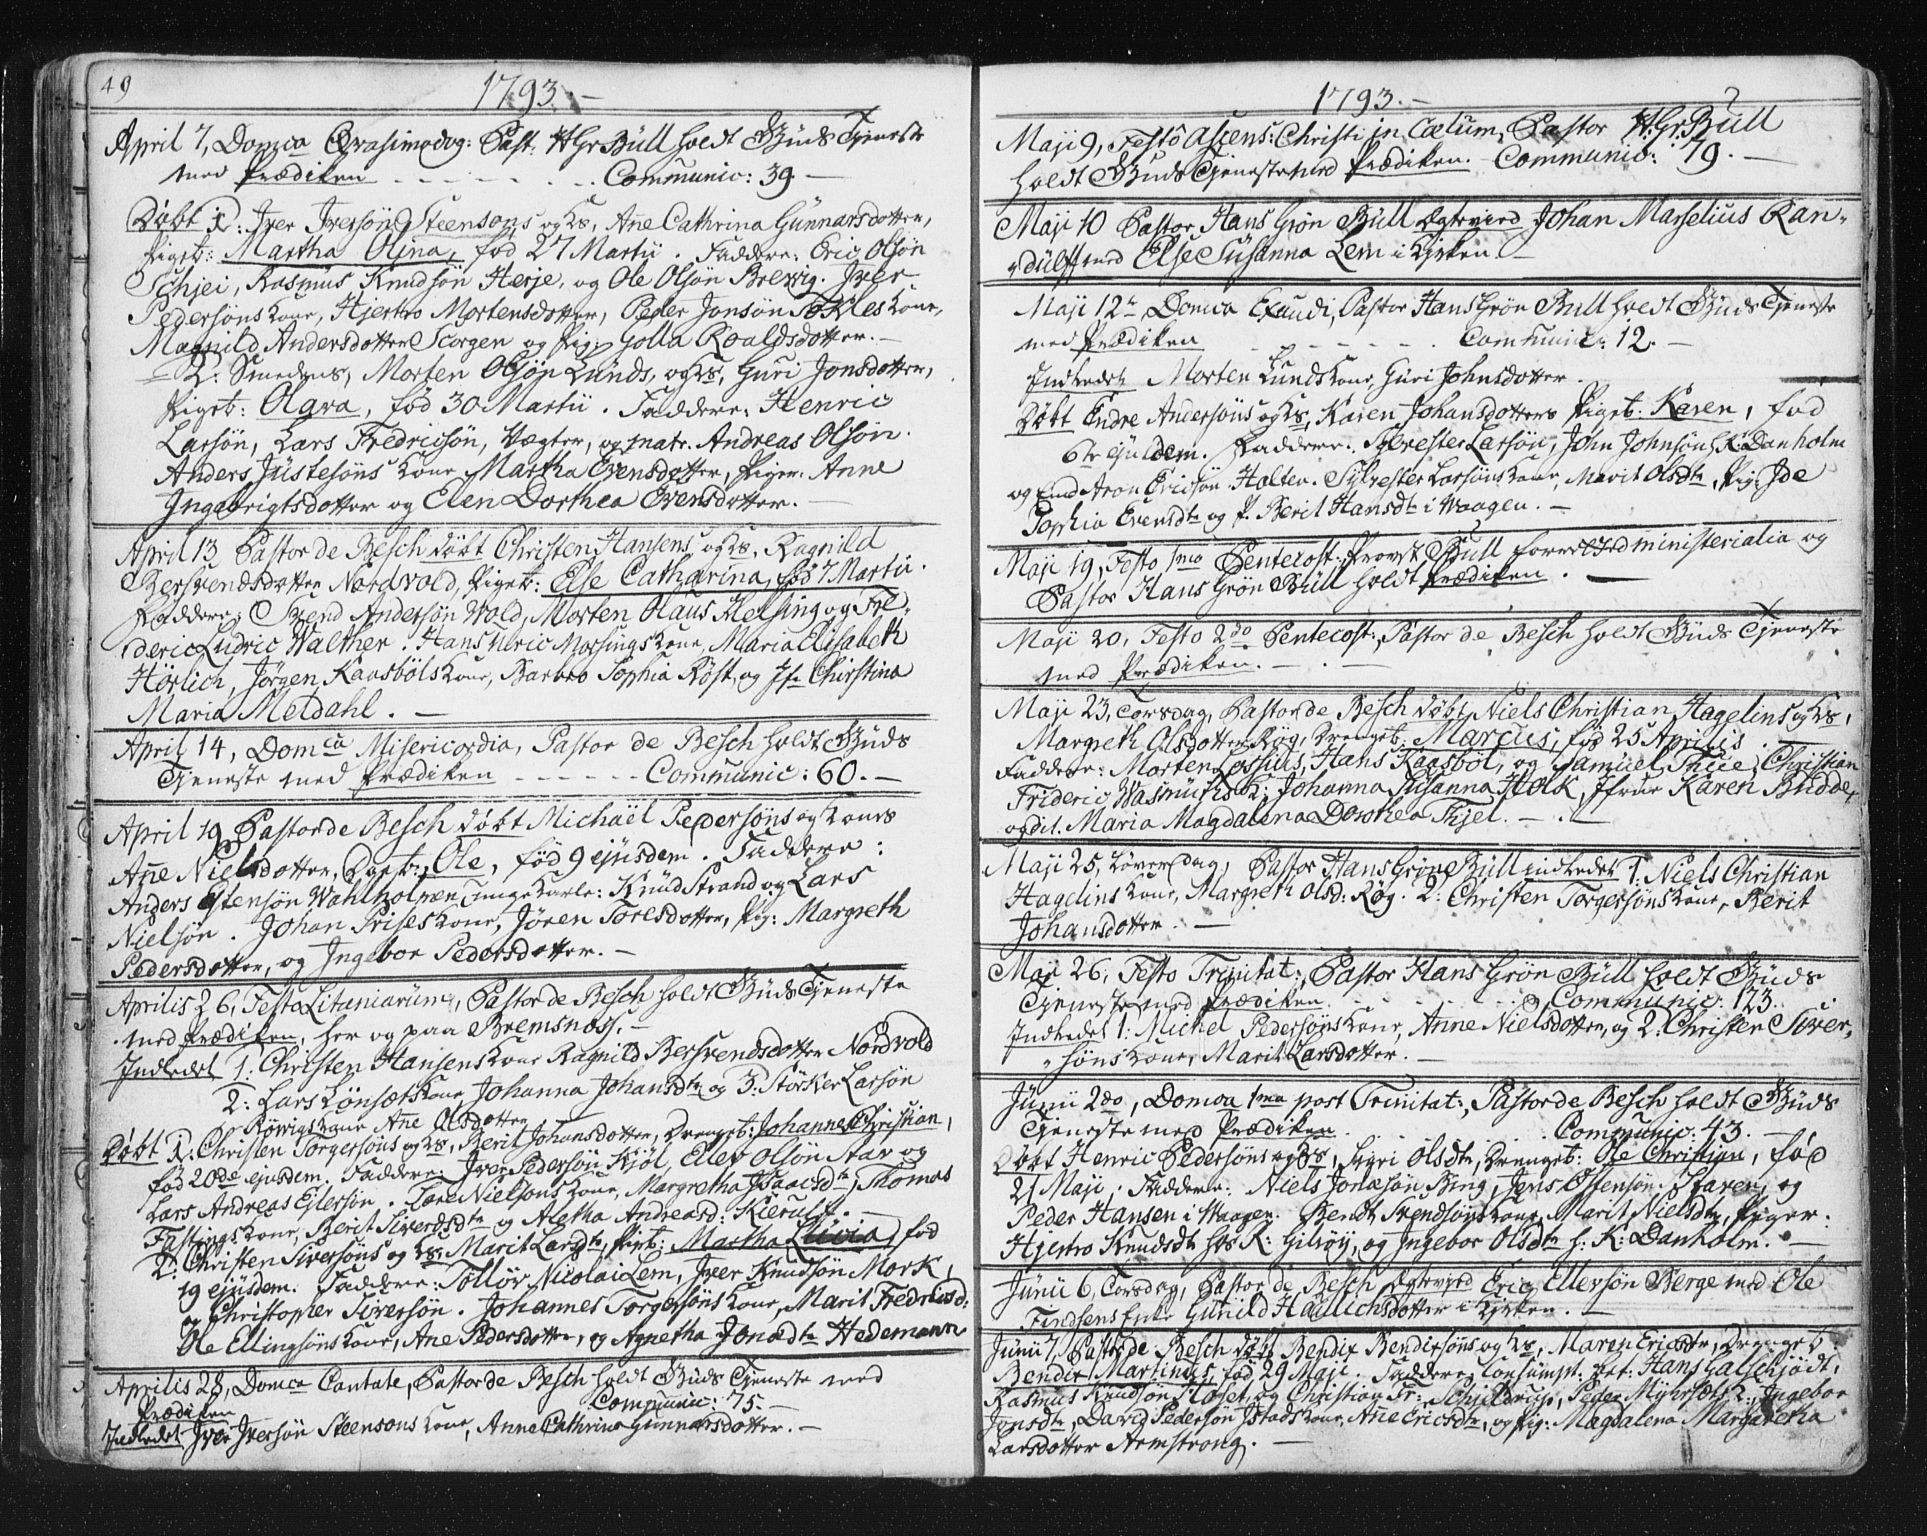 49
1793. –
April 7, Domca Qvasimodog: Past: H Gr Bull holdt Guds Tjeneste
med Prædiken - - - - - - - Communic: 39 –
Døbt 1: Iver Iversøn Steensons og Ks, Ane Cathrina Gunnarsdotter,
Pigeb: Martha Olina, fød 27 Martii. Faddere: Eric Olsøn
Schjei, Rasmus Knudsøn Herje, og Ole Olsøn Brevig. Iver
Pedersøns Kone, Hjertro Mortensdotter, Peder Jonsøn Kone,
Magnild Andersdotter Scorgen og Pig: Golla Roaldsdotter. –
2: Smedens, Morten Olsøn Lunds, og Ks, Guri Jonsdotter,
Pigeb: Olava, fød 30 Martii. Faddere: Henric
Larsøn, Lars Fredricsøn, Vægter, og matr. Andreas Olsøn.
Anders Justesøns Kone Martha Evensdotter, Piger: Anne
Ingebrigtsdotter og Elen Dorthea Evensdotter. –
April 13 Pastor de Besch døbt Christen Hansens og Ks, Ragnild
Bersvendsdotter Nordvold, Pigeb: Else Catharina, fød 7 Martii.
Faddere: Svend Andersøn Wold, Morten Claus Helsing og Fre-
deric Ludvic Walther. Hans Ulric Morsings Kone, Maria Elisabeth
Hørlich, Jørgen Kaasbøls Kone, Barbro Sophia Røst, og Jfr Christina
Maria Meldahl. –
April 14, Domca Misericordia, Pastor de Besch holdt Guds
Tjeneste med Prædiken - - - - - - Communic: 60. –
April 19 Pastor de Besch døbt Michaël Pedersøns og Kones
Ane Nielsdotter, Dreng: Ole, fød 9 ejusdem. Faddere:
Anders Ostensøn Wahlholmen, Ungekarle: Knud Strand og Lars
Nielsøn. Johan Prises Kone, Jören Torlsdotter, Pig: Margreth
Pedersdotter, og Ingebor Pedersdotter. –
Aprilis 26, Festo Litaniarum, Pastor de Besch holdt Guds Tjeneste
med Prædiken, her og paa Bremsness. –
Indledet 1: Christen Hansens Kone Ragnild Bersvendsdotter Nordvold
2: Lars Lönsæts Kone Johanna Johansdtr og 3: Størker Larsøn
Røvigs Kone Ane Olsdotter
Døbt 1: Christen Torgersøns og Ks, Berit Johansdotter, Drengeb: Johannes Christian,
fød 20de ejusdem. Faddere: Iver Pedersøn Kjøl, Ellev Olsøn Star og
Lars Andreas Ejlersøn. Tore Nielsøns Kone, Margretha Isaacsdtr, Thomas
Fastings Kone, Berit Siverdsdtr og Aletha Andreasd: Kierulf. –
2: Christen Siversøns og Ks: Marit Larsdtr, Pigeb: Martha Livia, fød
19 ejusdem. Faddere: Tolløv Nicolai Lem, Iver Knudsøn Mork,
og Christopher Siversøn. Johannes Torgersøns Kone, Marit Fredricsd.
Ole Ellingsøns Kone, Ane Pedersdotter, og Agnetha Jonædtr Hedemann
Aprilis 28, Domca Cantate, Pastor de Besch holdt Guds Tjeneste med
Prædiken Communic: 75. –
Indledet Iver Iversøn Steensons Kone, Anne Cathrina Gunnarsdotter. –
1793. –
Maji 9, Festo Ascens: Christi in Cælum, Pastor H: Gr: Bull
holdt Guds Tjeneste med Prædiken. – Communic: 79. –
Maji 10 Pastor Hans Grøn Bull Ægteviid Johan Marselius Ran-
dulff med Else Susanna Lem i Kjrken. –
Maji 12te Domca Exaudi, Pastor Hans Grøn Bull holdt Guds Tjeneste
med Prædiken - - - - - - - Communic: 12. –
Indledet Morten Lunds Kone, Guri Johnsdotter.
Døbt Endre Andersøns og Ks, Karen Johansdotters Pigeb: Karen, fød
6te ejusdem. Faddere: Sylvester Larsøn, John Johnsøn h: K: Danholm
og Em Aron Ericsøn Holten. Sylvester Larsøns Kone, Marit Olsdtr, Pig: Ide
Sophia Evensdtr og P. Berit Hansdtr i Waagen. –
Maji 19, Festo 1mo Pentecost: Provst Bull forrettet ministerialia og
Pastor Hans Grøn Bull holdt Prædiken. –
Maji 20, Festo 2do Pentecost: Pastor de Besch holdt Guds Tjeneste
med Prædiken. –
Maji 23, Torsdag, Pastor de Besch døbt Niels Christian Hagelins og Ks,
Margreth Olsdotter Røg, Drengeb: Marcus, fød 25 Aprilis.
Faddere: Morten Lossius, Hans Kaasbøl, og Samuel Thue, Christian
Frideric Wasmuths K: Johanna Susanna Holk, Jfrue Karen Budde,
og dit. Maria Magdalena Dorothea Thjel. –
Maji 25, Løverdag, Pastor Hans Grøn Bull indledet 1: Niels Christian
Hagelins Kone, Margreth Olsd: Røg. 2: Christen Torgersøns Kone, Berit
Johansdotter. –
Maji 26, Festo Trinitat:, Pastor Hans Grøn Bull holdt Guds
Tjeneste med Prædiken - - - - Communic: 173.
Indledet 1: Michel Pedersøns Kone, Anne Nielsdotter, og 2: Christen Siver-
søns Kone, Marit Larsdotter. –
Junii 2do, Domca 1ma post Trinitat:, Pastor de Besch holdt Guds
Tjeneste med Prædiken - - - - Communic: 43. –
Døbt Henric Pedersøns og Ks, Siyri Olsdtr, Drengeb: Ole Christian, fød
21 Maji. Faddere: Niels Jonæsøn Bing, Jens Ostensøn Staren, og
Peder Hansen i Waagen. Bendt Svendsøns Kone, Marit Nielsdtr, Piger:
Hjertro Knudsdtr hos K: Gilrøy, og Ingebor Olsdtr h: K: Danholm. –
Junii 6, Torsdag, Pastor de Besch Ægteviid Eric Ellefsøn Berge med Ole
Findsens Enke Gunild Hallichsdotter i Kjrken. –
Junii 7, Pastor de Besch døbt Bendix Bendixsøns og Ks, Maren Ericsdtr, Drengeb:
Bendix Martinus, fød 29 Maji. Faddere: Consumpt: Bet: Hans Galschjødt,
Rasmus Knudsøn Floset, og Christian Fr: Schjelderup, Peder Myhrsæts K: Ingebor
Jonsdtr, David Pedersøn Istads Kone, Ane Ericsdtr, og Pig: Magdalena Margaretha
Larsdotter Armstrong. –